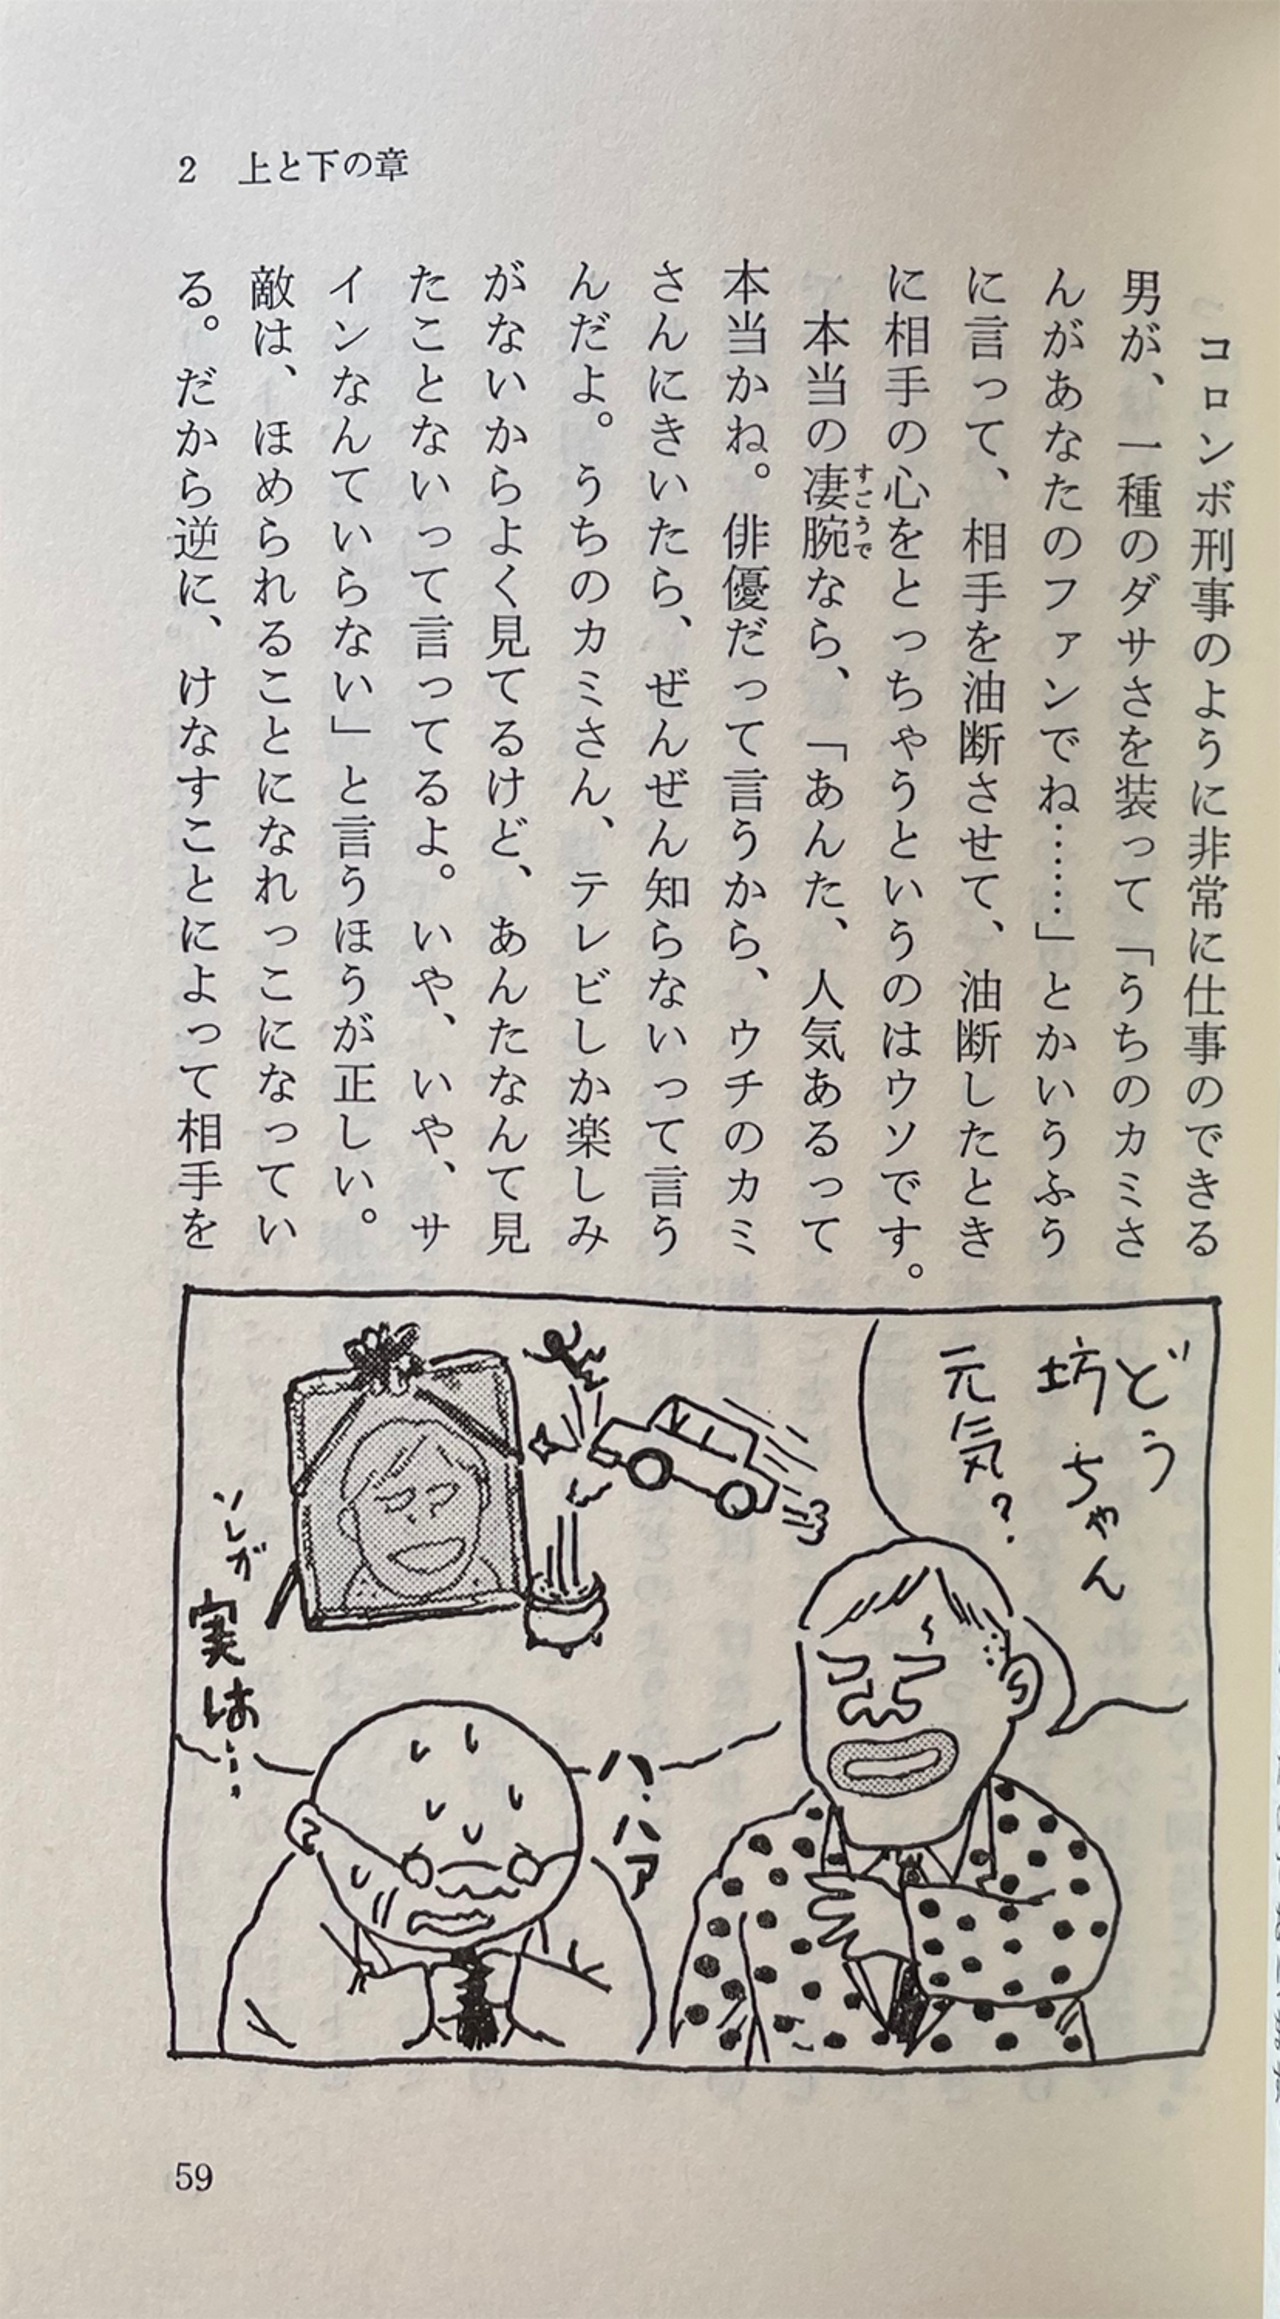 2　上と下の章
コロンボ刑事のように非常に仕事のできる
男が、一種のダサさを装って「うちのカミさ
んがあなたのファンでね……」とかいうふう
に言って、相手を油断させて、油断したとき
に相手の心をとっちゃうというのはウソです。
本当の凄腕なら、「あんた、人気あるって
すごうで
本当かね。俳優だって言うから、ウチのカミ
さんにきいたら、ぜんぜん知らないって言う
んだよ。うちのカミさん、テレビしか楽しみ
がないからよく見てるけど、あんたなんて見
たことないって言ってるよ。いや、いや、サ
インなんていらない」と言うほうが正しい。
敵は、ほめられることになれっこになってい
る。だから逆に、けなすことによって相手を
どう
坊ちゃん
元気?
ハ・ハア
ソレガ
実は…
59